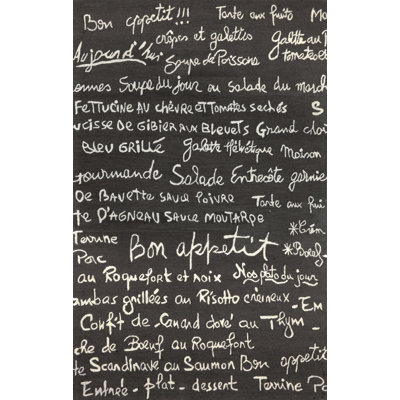 Bon appetit!!! Tarte aux fruits Mo
crêpes et galettes Galette au P
Aujourd'hui Soupe de Poissons tomatesette
onnes Soupe du jour ou salade du march
FETTUCINE AU CHÈVRE ET TOMATES SECHÉS S
UCISSE DE GIBIER AUX BLEUETS GRAND choi
BLEU GRILLÉ Galette Helvétique Maison
ourmande Salade Entrecôte garnie
DE BAVETTE SAUCE POIVRE Tarte aux frui
TE D'AGNEAU SAUCE MOUTARDE
Terrine Bon appetit *Crèm
Porc *Boeuf
au Roquefort et noix Nos plats du jour
ambas grillées au Risotto crèmeux - EM
Confit de Canard doré au Thym
che de Bœuf au Roquefort
te Scandinave au Saumon Bon appetit
Entrée - plat - dessert Terrine Po